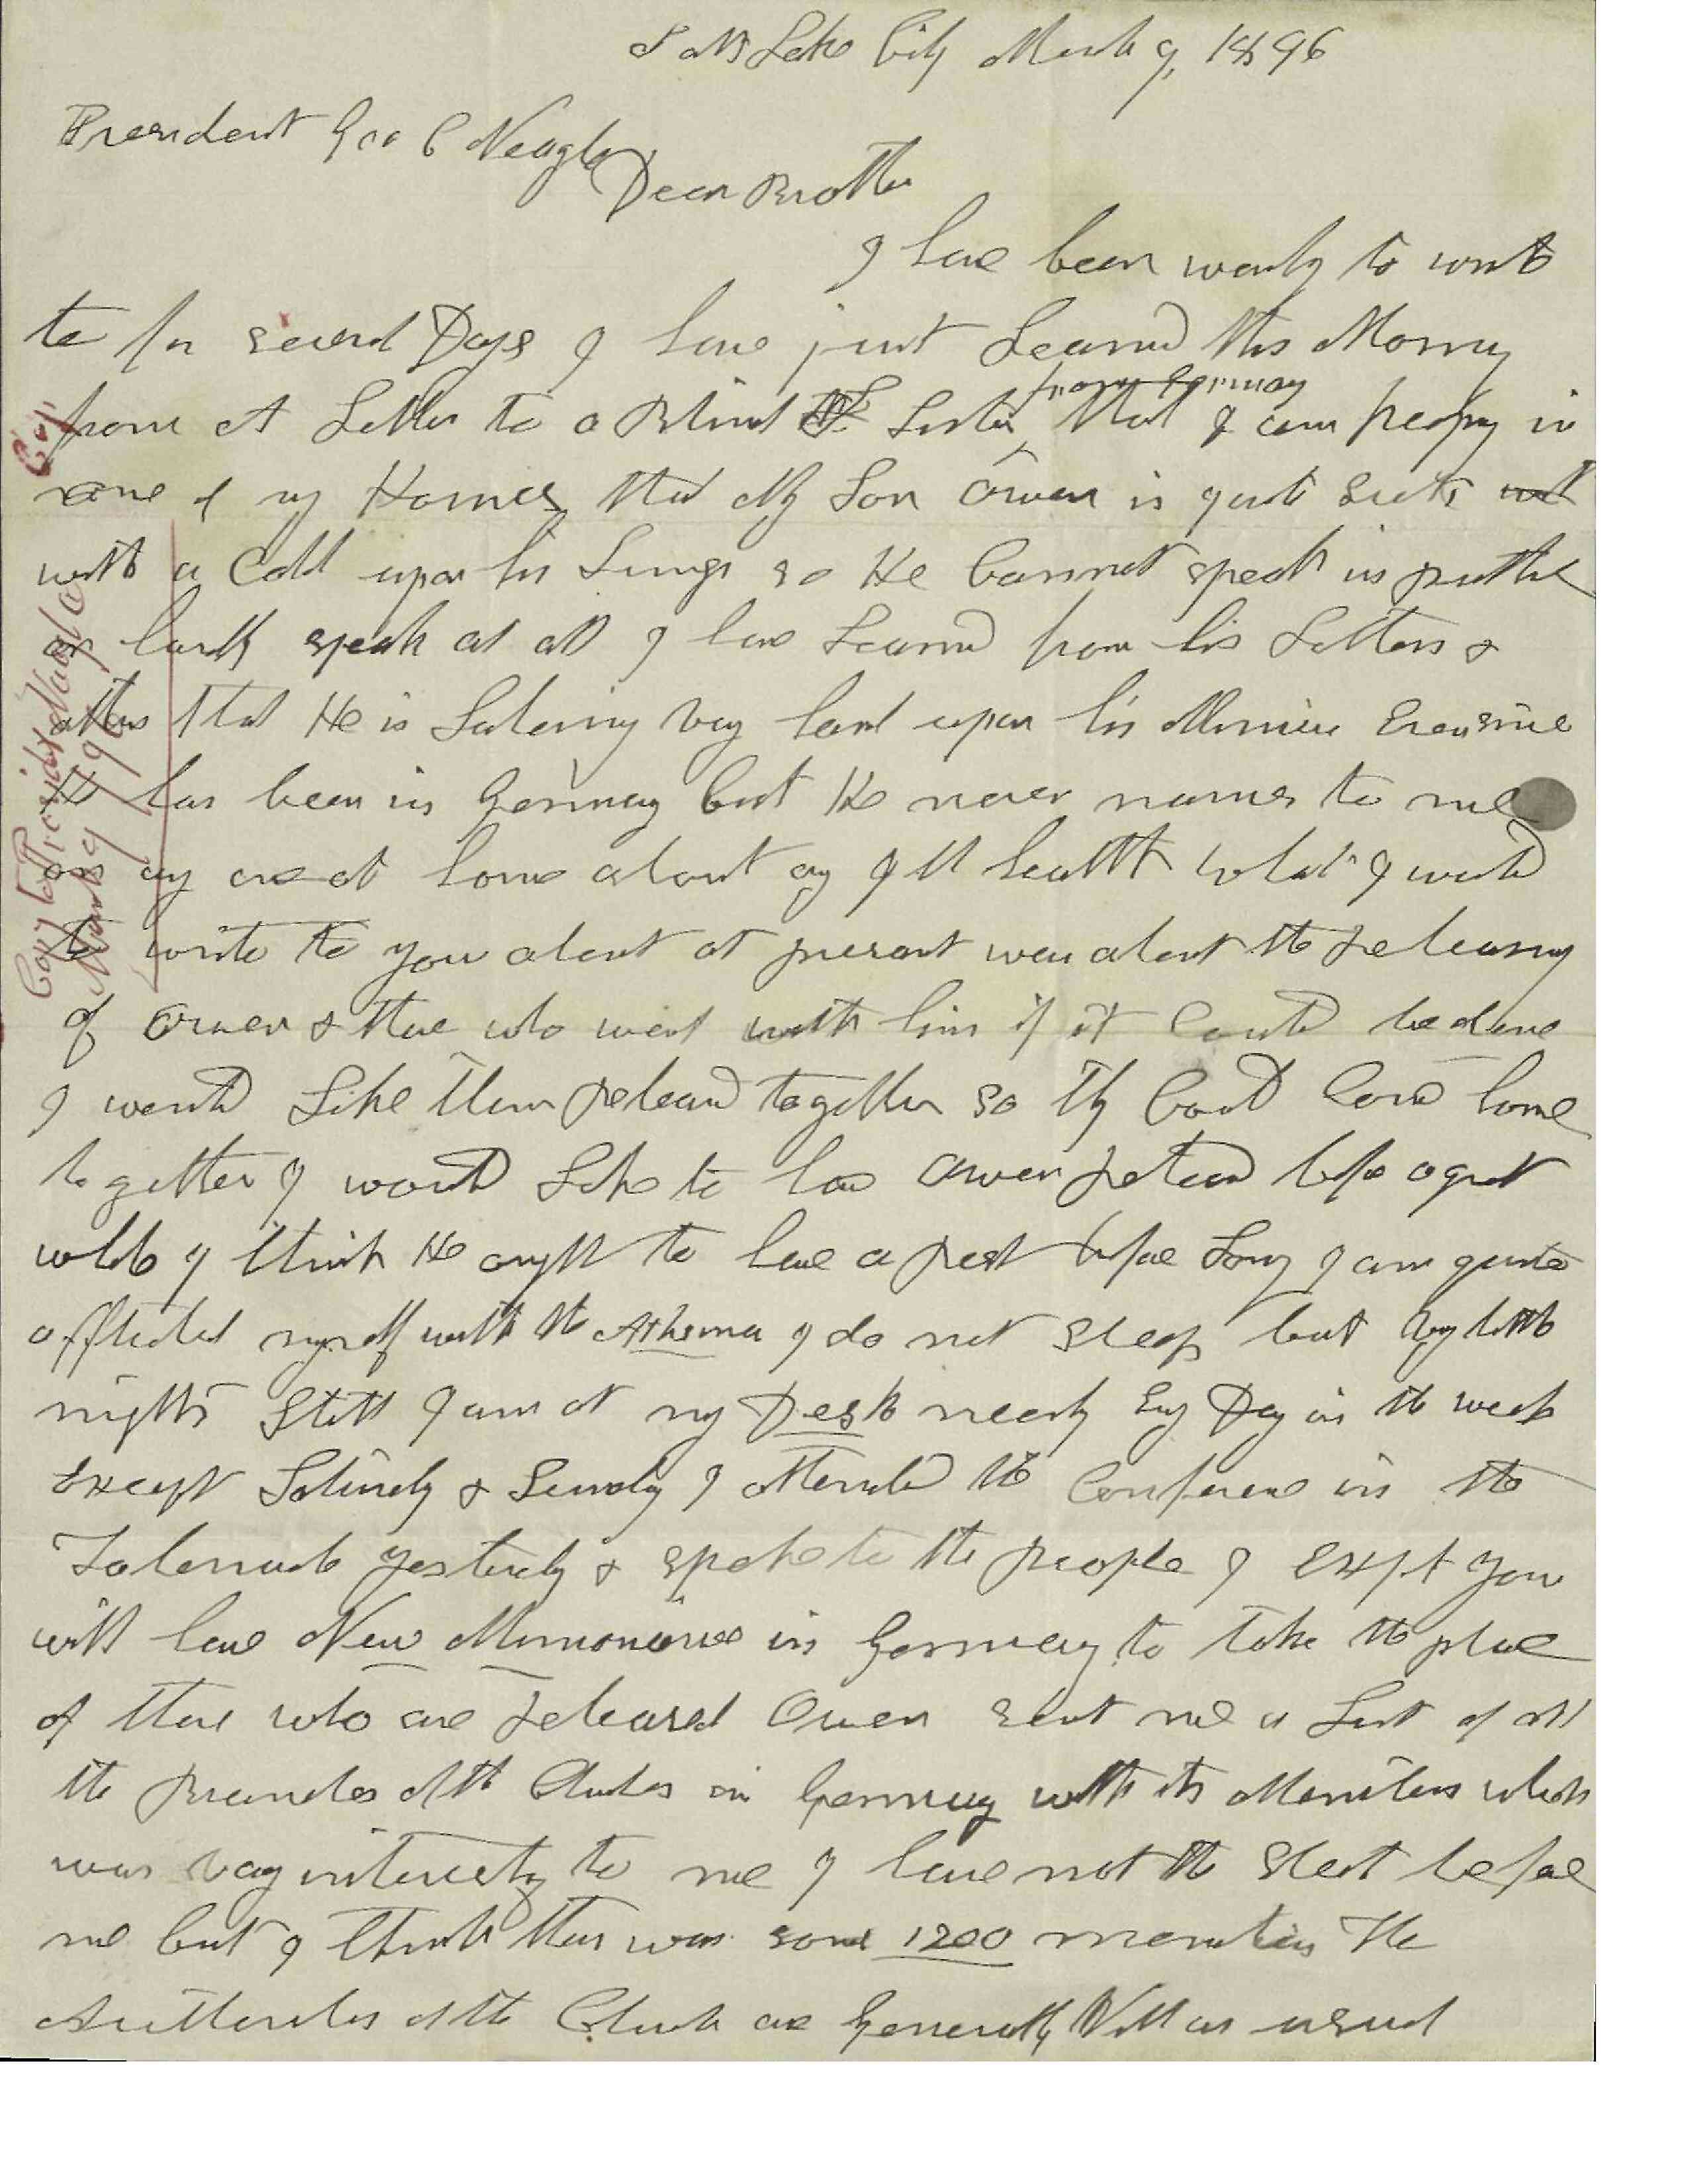 Salt Lake City March 9, 1896
President Geo C Naegle
Dear Brother
I have been wanting to write
to for several Days I have just Learned this Morning
from A Letter to a Blind Sister from Germany that I am keeping in
one of my Homes that My Son Owen is quite sick
with a Cold upon his Lungs so He Cannot speak in public
or hardly speak at all I have Learned from his Letters &
others that He is Labering very hard upon his Mission Ever since
He has been in Germany but He never names to me
or any one at home about any Ill health what I wanted
to write to you about at present was about the releasing
of Owen & those who went with him if it Could be done
I would Like them released together so they Could Come home
together I would Like to have Owen released before a great
while I think He ought to have a rest before Long I am quite
afflicted myself with the Asthma I do not sleep but very little
nights Still I am at my Desk nearly Evry Day in the week
Except Saturday & Sunday I attended the Conference in the
Tabernacle yesterday & spoke to the people I Expt you
will have New Missionaries in Germany to take the place
of those who are released Owen sent me a List of all
the Branches of the Church in Germany with its Members which
was very interesting to me I have not the sheet before
me but I think there was some 1200 members The
Authorities of the Church are Generally Well as usual
Copy
Copy to President Naegle
March 9 1896